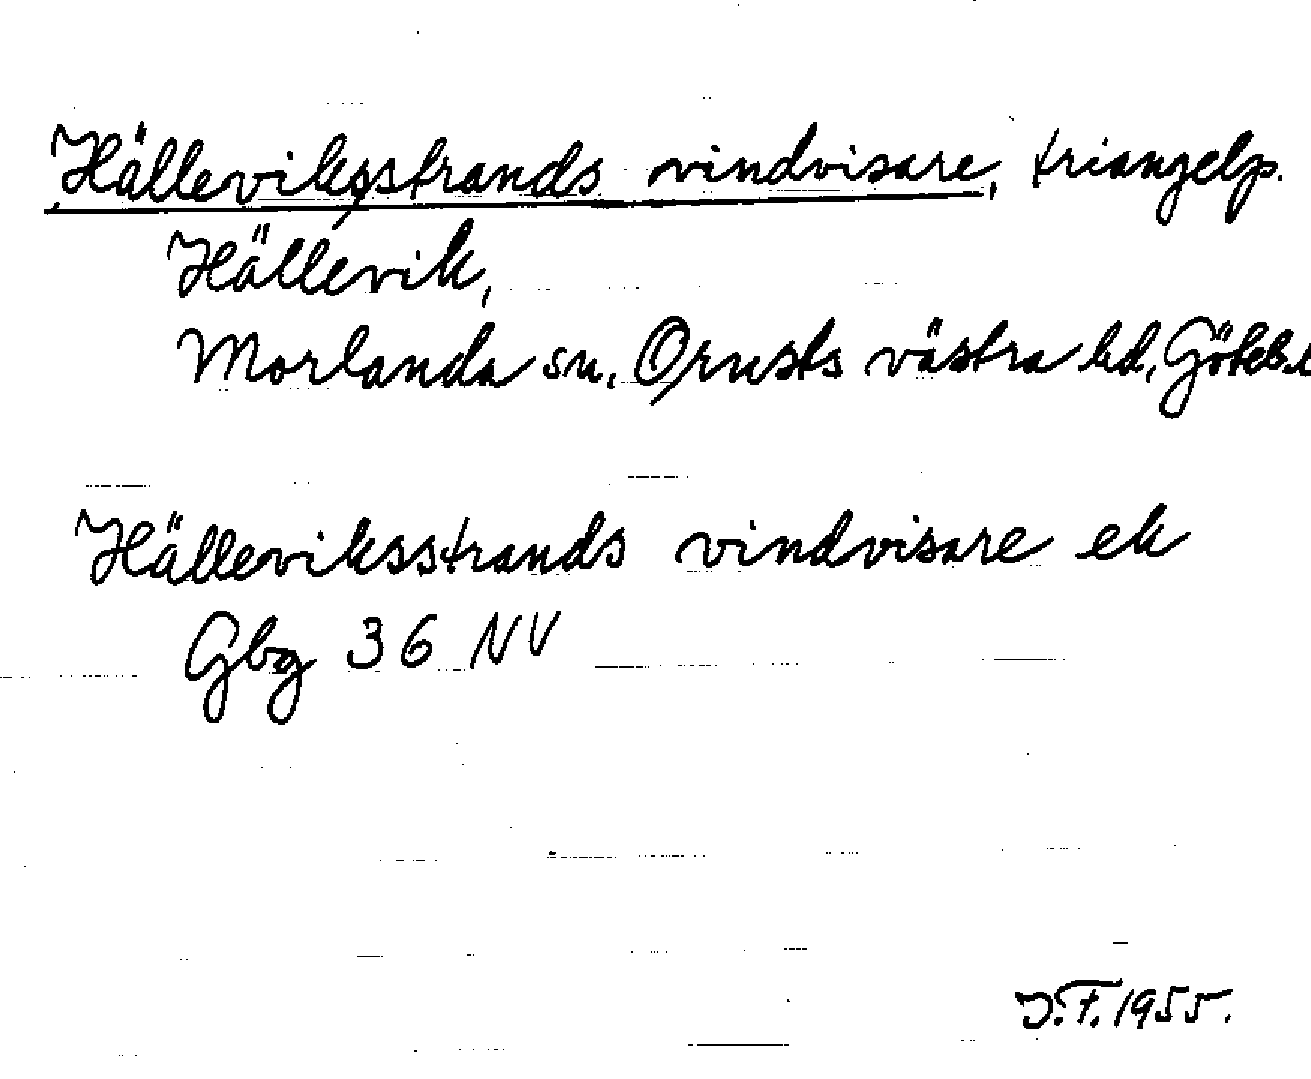 Hälleviksstrands vindvisare, triangelp.
Hällevik,
Morlanda sn, Orusts västra hd, Göteb.l
Hälleviksstrands vindvisare ek
Gbg 36 NV
J.F. 1955.